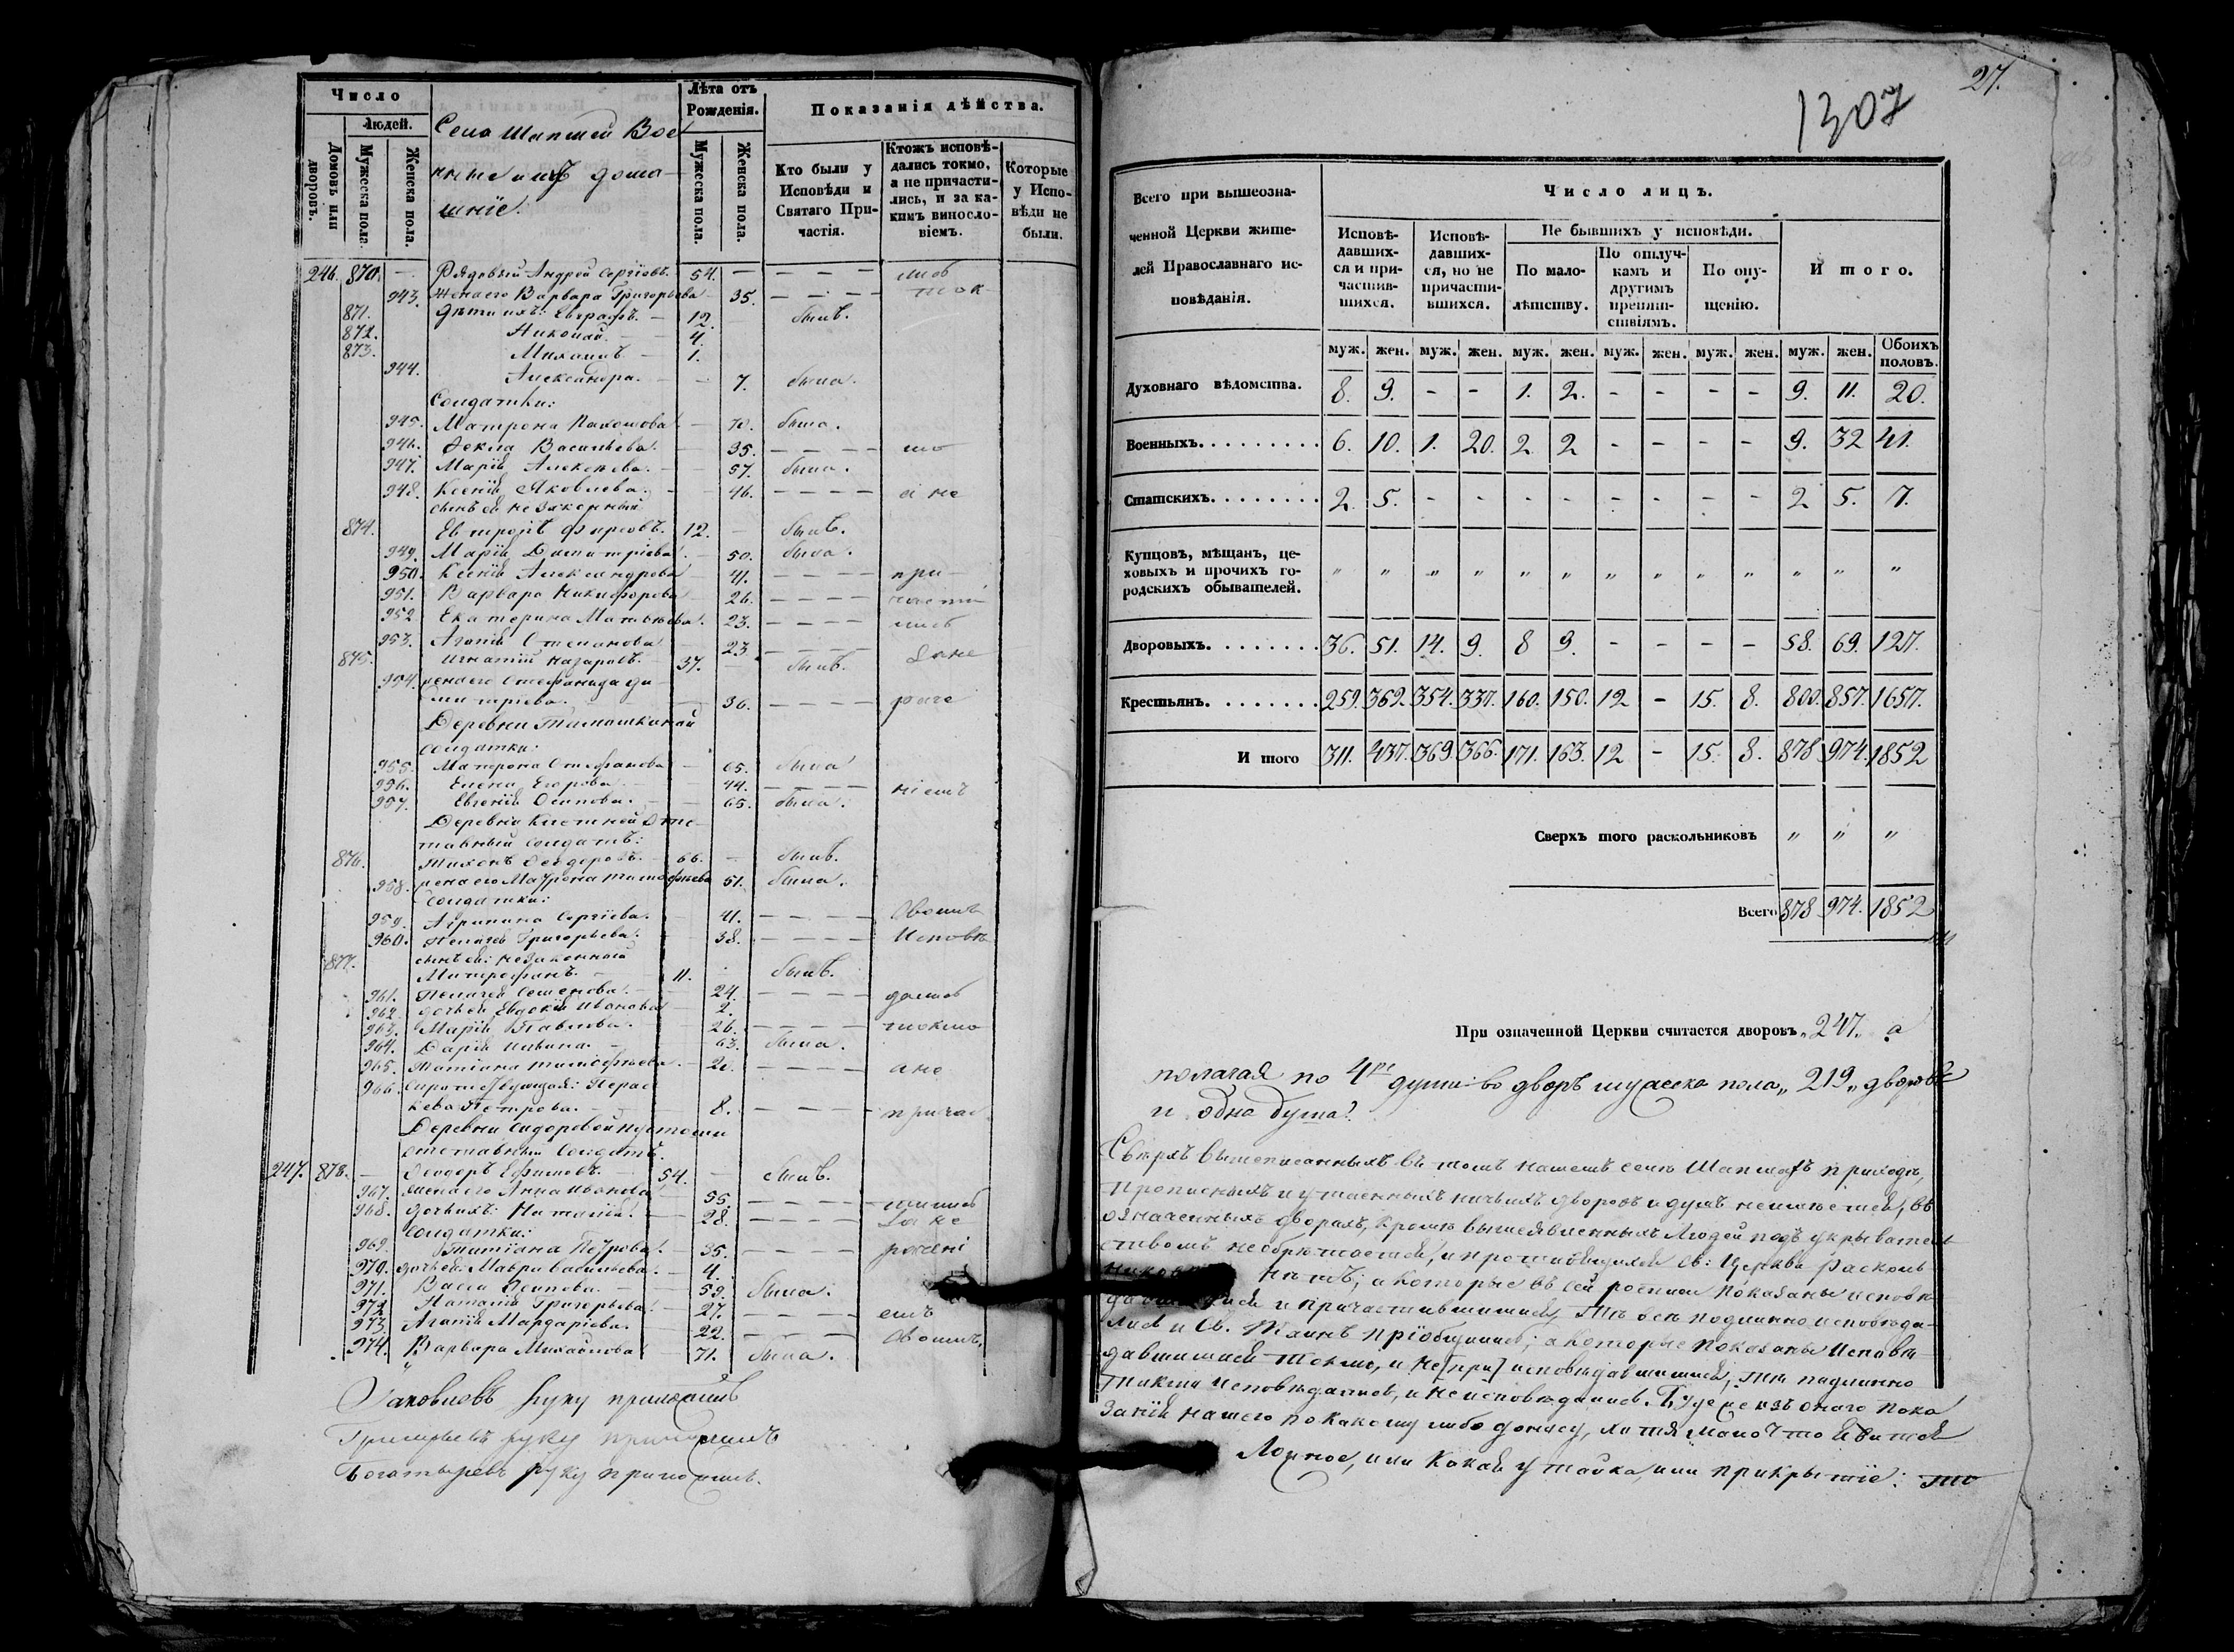 Число
Людей.
Домовъ или дворовъ.
Мужеска пола.
Женска пола.
Села Шапшей Вое
нные ихъ дома-
шніе.
Лѣта отъ Рожденія.
Мужеска пола.
Женска пола.
Показанія дѣйства.
Кто были у Исповѣди и Святаго При-частія.
Ктожъ исповѣ-дались токмо, а не причасти-лись, и за ка-кимъ винословіемъ.
Которые у Испо-вѣди не были.
246. 870. — Рядовый Андрей Сергіевъ. 54. —
943. Жена его Варвара Григорьева 35. — ток
871. Дѣти ихъ: Евграфъ. — 12. былъ.
872. Николай. — 4.
873. Михаилъ — 1.
944. Александра. — 7. была.
Солдатки:
945. Матрона Пахомова — 70. была.
946. Ѳекла Васильева. 35. мо
947. Марія Алексѣева. 57. была.
948. Ксенія Яковлева. 46. а не
сынъ ея незаконный
874. Евтропъ Фирсовъ. 12. — былъ.
949. Марія Димитріева. 50. была.
950. Ксенія Александрова 41. при
951. Варвара Никифорова 26. части
952. Екатерина Матвѣева. 23. лись
953. Агапія Степанова 23
875. Игнатій Назаровъ. 37. былъ.
954. жена его Стефанида Ди-
митріева. 36.
Деревни
солдатки:
955. Матрона Стефанова 65. была
956. Елена Егорова 44.
957. Евгенія Осипова. 65. была.
Деревни отс-
тавный солдатъ:
876. Тихонъ Ѳеодоровъ. 66. — былъ.
958. жена его Матрона Тимофѣева 51. была.
Солдатки:
959. Агрипина Сергіева. 41.
960. Пелагія Григорьева. 38. Исповѣ
877. сынъ ея: незаконный
Митрофанъ. — 11. былъ.
961. Пелагея Семенова. 24.
962. дочь ея Евдокія Иванова 2.
963. Марія Павлова. 26. токмо
964. Дарія Ильина. 63. была.
965. Татіана Тимофѣева. 20. а не
966. Параскева Петрова. — 8. причас
Деревни Сидоровой пустоши
отставный Солдатъ.
247. 878. — Ѳеодоръ Ефимовъ. 54. — былъ.
967. жена его Анна Иванова 55.
968. дочь ихъ: Наталія. 28.
Солдатки:
969. Татіана Петрова. 35.
970. дочь ея: Мавра Васильева. 4.
971. Васса Осипова. 59. была.
972 Наталія Григорьева. 27.
973. Агапія Мардаріева. 22.
974. Варвара Михайлова 71. была.
Яковлевъ руку приложилъ
Григорьевъ руку приложилъ
Богатыревъ руку приложилъ.
27.
1307
Всего при вышеозна-ченной Церкви жите-лей Православнаго ис-повѣданія.
Число лицъ.
Исповѣ-давших-ся и при-частив-шихся.
Исповѣ-давших-ся, но не причасти-вшихся.
Не бывшихъ у исповѣди.
По мало-лѣтству.
По отлуч-камъ и другимъ препят-ствіямъ.
По опу-щенію.
И того.
муж. жен. муж. жен. муж. жен. муж. жен. муж. жен. муж. жен. Обоихъ половъ.
Духовнаго вѣдомства. 8. 9. - - 1. 2. - - - - 9. 11. 20.
Военныхъ. 6. 10. 1. 20. 2. 2 - - - - 9. 32 41.
Статскихъ. 2. 5. - - - - - - - - 2 5. 7.
Купцовъ, мѣщанъ, це-ховыхъ и прочихъ го-родскихъ обывателей. " " " " " " " " " " " " "
Дворовыхъ. 36. 51. 14. 9. 8 9. - - - - 58. 69. 127.
Крестьянъ. 259. 362. 354. 337. 160. 150. 12 - 15. 8. 800. 857. 1657.
И того 311. 437. 369. 366. 171. 163. 12 - 15. 8. 878 974. 1852
Сверхъ того раскольниковъ " " "
Всего 878 974. 1852
При означенной Церкви считается дворовъ „247. а
полагая по 4ре души во дворъ мужеска пола „219„ дворовъ
и одна душа.
Сверхъ вышеписанныхъ въ томъ нашемъ селѣ Шапшахъ приходѣ,
прописныхъ и утаенныхъ ничьихъ дворовъ и душъ не имѣется, въ
означенныхъ дворахъ, кромѣ вышеявленныхъ людей подъ укрыватель
ствомъ не обрѣтается, и противящихся Св: Церкви раскольниковъ нѣтъ; а которые въ сей росписи показаны исповѣ
и причастившимися, тѣ всѣ подлинно исповѣда-
лись и Св. Таинъ пріобщились; а которые показаны исповѣ
давшимися токмо, и не [при] исповѣдавшимися, тѣ подлинно
токмо исповѣдались, и не исповѣдались. Буде же изъ онаго пока
занія нашего по какому либо доносу, хотя мало что явится
Ложное, или какая утайка, или прикрытіе: то